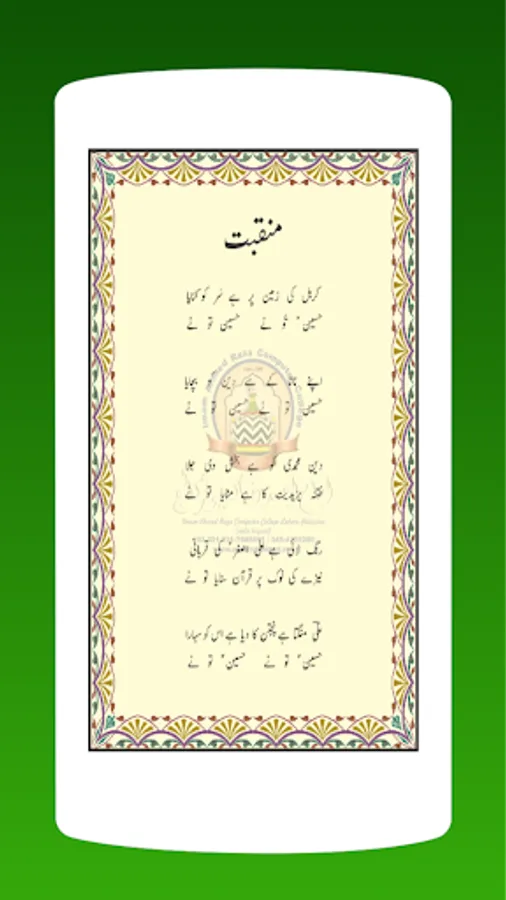 منقبت
کربل کی زمین پر ہے سَر کو کٹایا
حسینؑ تُو نے حسین تو نے
اپنے نانا کے ہے دین کو بچایا
حسینؑ تو نے حسین تو نے
دین محمدی کو ہے بخش دی جلا
فتنہ یزیدیت کا ہے مٹایا تو نے
رنگ لائی ہے علی اصغرؑ کی قربانی
نیزے کی نوک پر قرآن سنایا تو نے
منگتا ہے پنجتن کا دیا ہے اس کو سہارا
حسینؑ تو نے حسینؑ تو نے